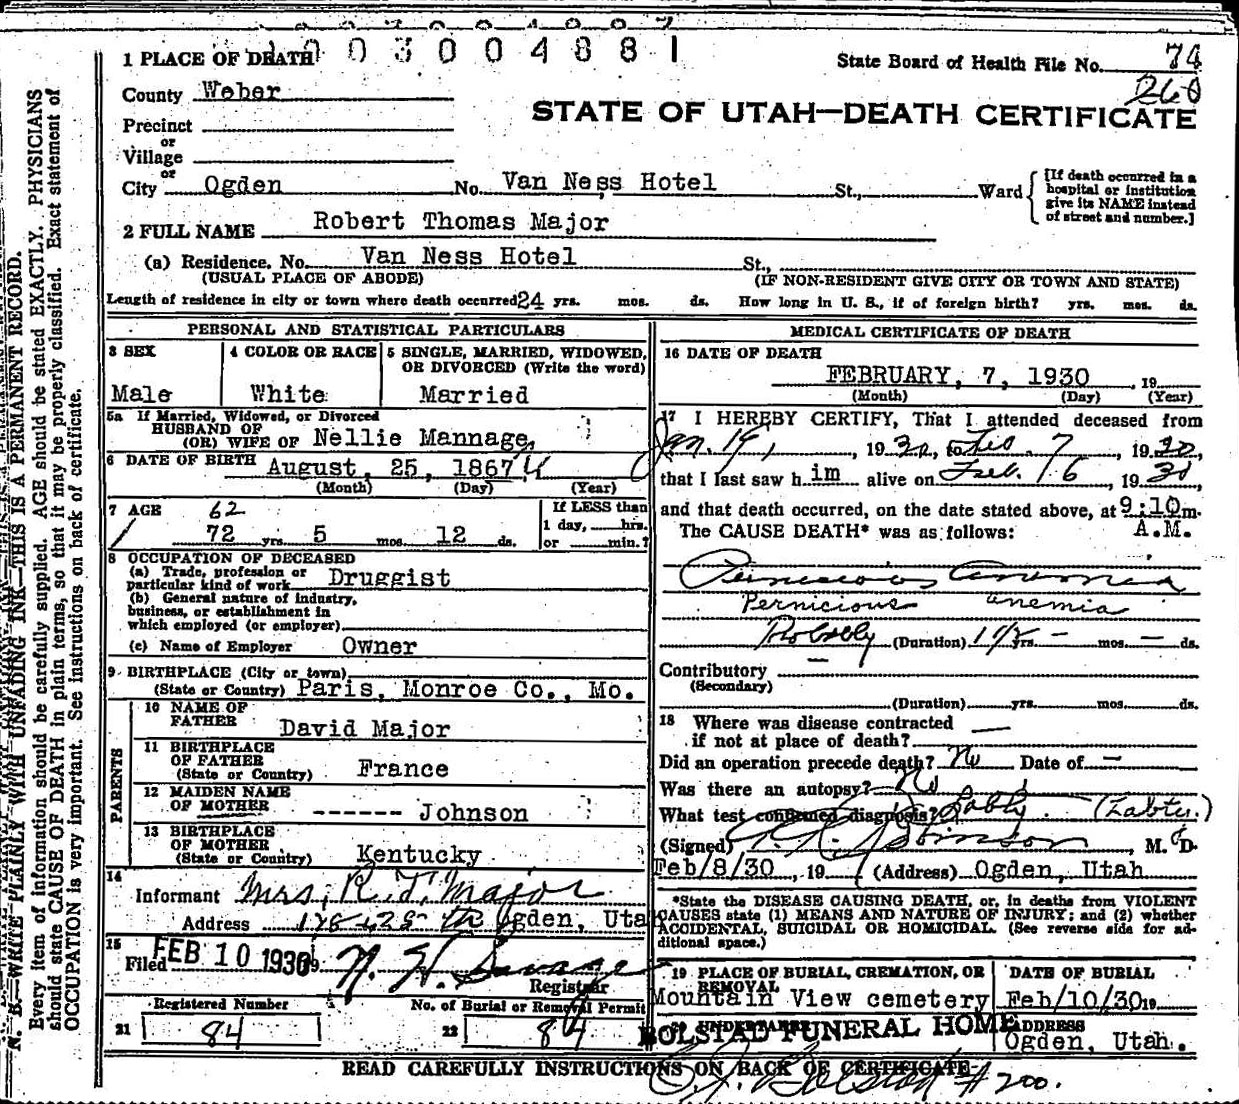 1003004881
1 PLACE OF DEATH
State Board of Health File No. 74
260
County Weber
STATE OF UTAH—DEATH CERTIFICATE
Precinct
or
Village
or
City Ogden No. Van Ness Hotel St., Ward
[If death occurred in a hospital or institution give its NAME instead of street and number.]
2 FULL NAME Robert Thomas Major
(a) Residence. No. Van Ness Hotel St.,
(USUAL PLACE OF ABODE) (IF NON-RESIDENT GIVE CITY OR TOWN AND STATE)
Length of residence in city or town where death occurred 24 yrs. mos. ds. How long in U. S., if of foreign birth? yrs. mos. ds.
PERSONAL AND STATISTICAL PARTICULARS
3 SEX
Male
4 COLOR OR RACE
White
5 SINGLE, MARRIED, WIDOWED,
OR DIVORCED (Write the word)
Married
5a If Married, Widowed, or Divorced
HUSBAND OF
(OR) WIFE OF Nellie Mannage
6 DATE OF BIRTH August, 25, 1867
(Month) (Day) (Year)
7 AGE 62
72 yrs. 5 mos. 12 ds.
If LESS than
1 day, hrs.
or min.?
8 OCCUPATION OF DECEASED
(a) Trade, profession or
particular kind of work Druggist
(b) General nature of industry,
business, or establishment in
which employed (or employer)
(c) Name of Employer Owner
9 BIRTHPLACE (City or town)
(State or Country) Paris, Monroe Co., Mo.
PARENTS
10 NAME OF
FATHER David Major
11 BIRTHPLACE
OF FATHER
(State or Country) France
12 MAIDEN NAME
OF MOTHER ------ Johnson
13 BIRTHPLACE
OF MOTHER
(State or Country) Kentucky
14
Informant Mrs. R. T. Major
Address Ogden, Utah
15
Filed FEB 10 1930 19
N. H. Savage
Registrar
Registered Number
21 84
No. of Burial or Removal Permit
22 84
MEDICAL CERTIFICATE OF DEATH
16 DATE OF DEATH
FEBRUARY, 7, 1930, 19
(Month) (Day) (Year)
17 I HEREBY CERTIFY, That I attended deceased from
Jan. 19, 1930, to Feb. 7, 1930,
that I last saw him alive on Feb. 6, 1930,
and that death occurred, on the date stated above, at 9:10 m.
The CAUSE DEATH* was as follows: A.M.
Pernicious Anemia
Pernicious anemia
Probably (Duration) 1 yrs. - mos. — ds.
Contributory —
(Secondary)
(Duration) yrs. mos. ds.
18 Where was disease contracted —
if not at place of death?
Did an operation precede death? No Date of —
Was there an autopsy? No
What test confirmed diagnosis?
(Signed) , M. D.
Feb/8/30, 19 (Address) Ogden, Utah
*State the DISEASE CAUSING DEATH, or, in deaths from VIOLENT
CAUSES state (1) MEANS AND NATURE OF INJURY; and (2) whether
ACCIDENTAL, SUICIDAL OR HOMICIDAL. (See reverse side for ad-
ditional space.)
19 PLACE OF BURIAL, CREMATION, OR
REMOVAL
Mountain View cemetery
DATE OF BURIAL
Feb/10/30 19
UNDERTAKER
BOLSTAD FUNERAL HOME
ADDRESS
Ogden, Utah.
READ CAREFULLY INSTRUCTIONS ON BACK OF CERTIFICATE
#200.
N. B.—WRITE PLAINLY WITH UNFADING INK—THIS IS A PERMANENT RECORD.
Every item of information should be carefully supplied. AGE should be stated EXACTLY. PHYSICIANS
should state CAUSE OF DEATH in plain terms, so that it may be properly classified. Exact statement of
OCCUPATION is very important. See instructions on back of certificate.